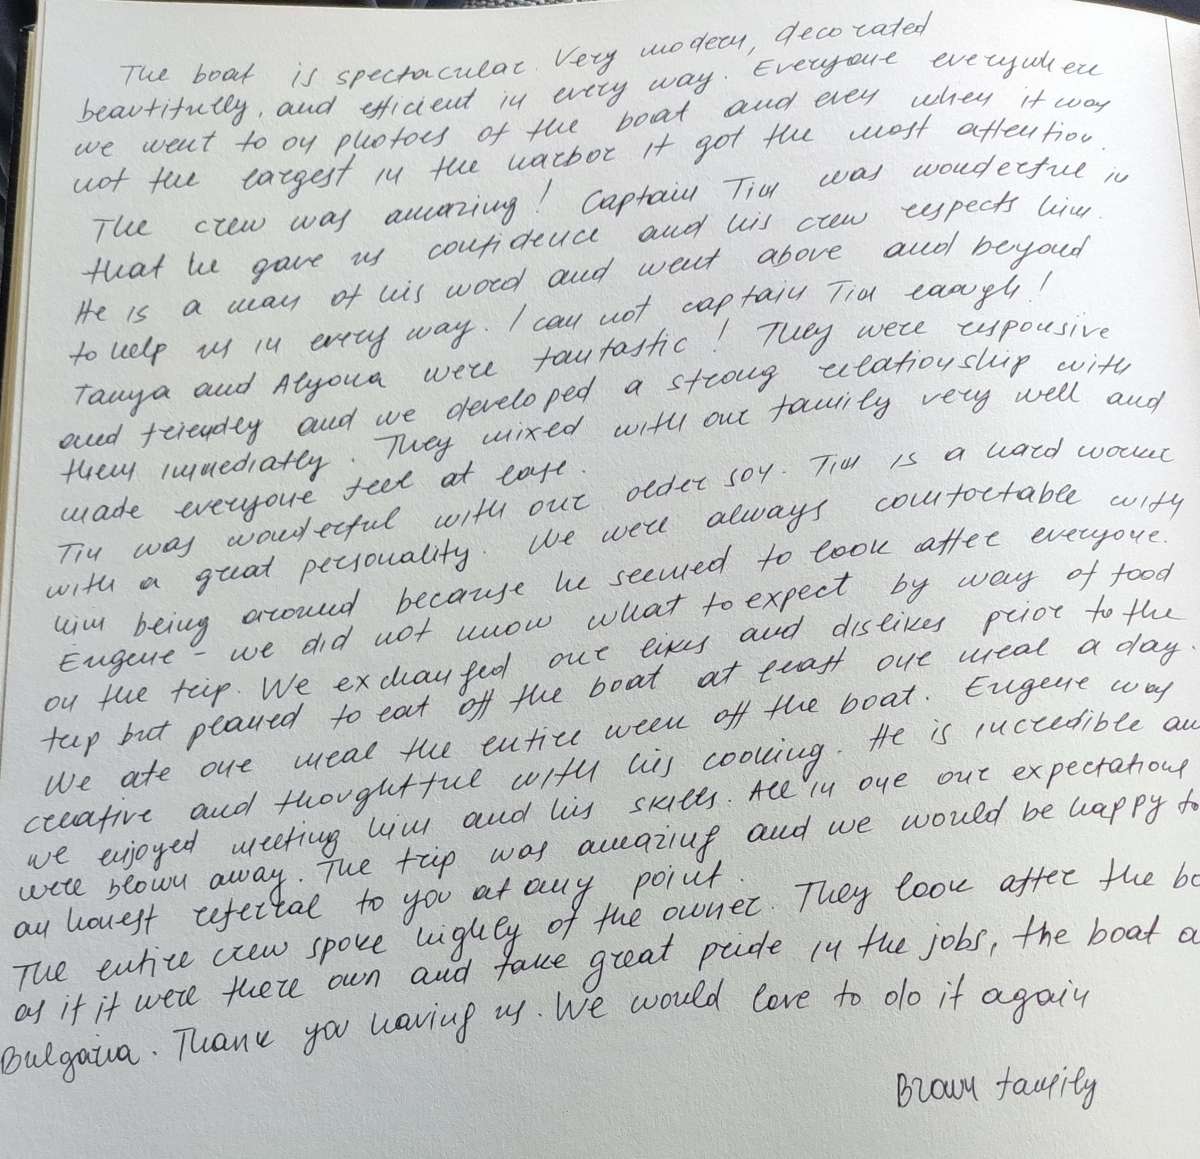 The boat is spectacular. Very modern, decorated
beautifully, and efficient in every way. Everyone everywhere
we went to on photoes of the boat and even when it was
not the largest in the harbor it got the most attention.
The crew was amazing! Captain Tim was wonderful in
that he gave us confidence and his crew respects him.
He is a man of his word and went above and beyond
to help us in every way. I can not captain Tim enough!
Tanya and Alyona were fantastic! They were responsive
and friendly and we developed a strong relationship with
them immediatly. They mixed with our family very well and
made everyone feel at ease.
Tim was wonderful with our older son. Tim is a hard worker
with a great personality. We were always comfortable with
him being around because he seemed to look after everyone.
Eugene - we did not know what to expect by way of food
on the trip. We exchanged our likes and dislikes prior to the
trip but planed to eat off the boat at least one meal a day.
We ate one meal the entire week off the boat. Eugene was
creative and thoughtful with his cooking. He is incredible an
we enjoyed meeting him and his skills. All in one our expectations
were blown away. The trip was amazing and we would be happy to
an honest referral to you at any point.
The entire crew spoke highly of the owner. They look after the bo
as if it were there own and take great pride in the jobs, the boat a
Bulgaria. Thank you having us. We would love to do it again
Brown family